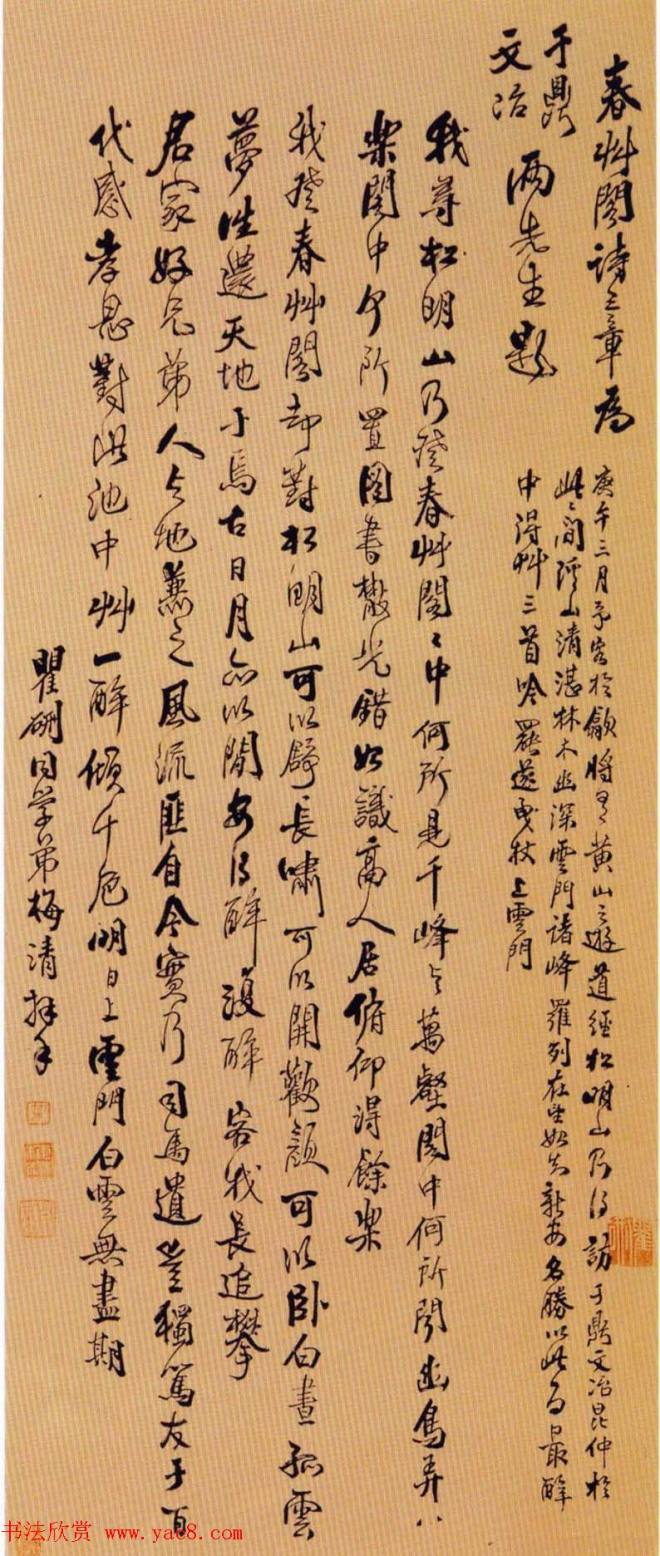 春艸閣詩三章為
于鼎
文冶 兩先生題
庚午三月予客於歙將有黃山之遊道經松明山乃得訪于鼎文冶昆仲於
此間溪山清湛林木幽深雲門諸峰羅列在望始知新安名勝以此為最醉
中得艸三首吟罷遂曳杖上雲門
我尋松明山乃登春艸閣閣中何所見千峰與萬壑閣中何所聞幽鳥弄
樂閣中何所置圖書散光錯始識高人居俯仰得餘樂
我登春艸閣却對松明山可以舒長嘯可以開歡顏可以卧白晝孤雲
夢往還天地于焉古日月亦以閒安得醉復醉容我長追攀
君家好兄弟人與地兼之風流匪自今實乃司馬遺豈獨篤友于百
代感孝思對此池中艸一醉傾千卮明日上雲門白雲無盡期
瞿硎同學弟梅清拜手
书法欣赏 www.yac8.com